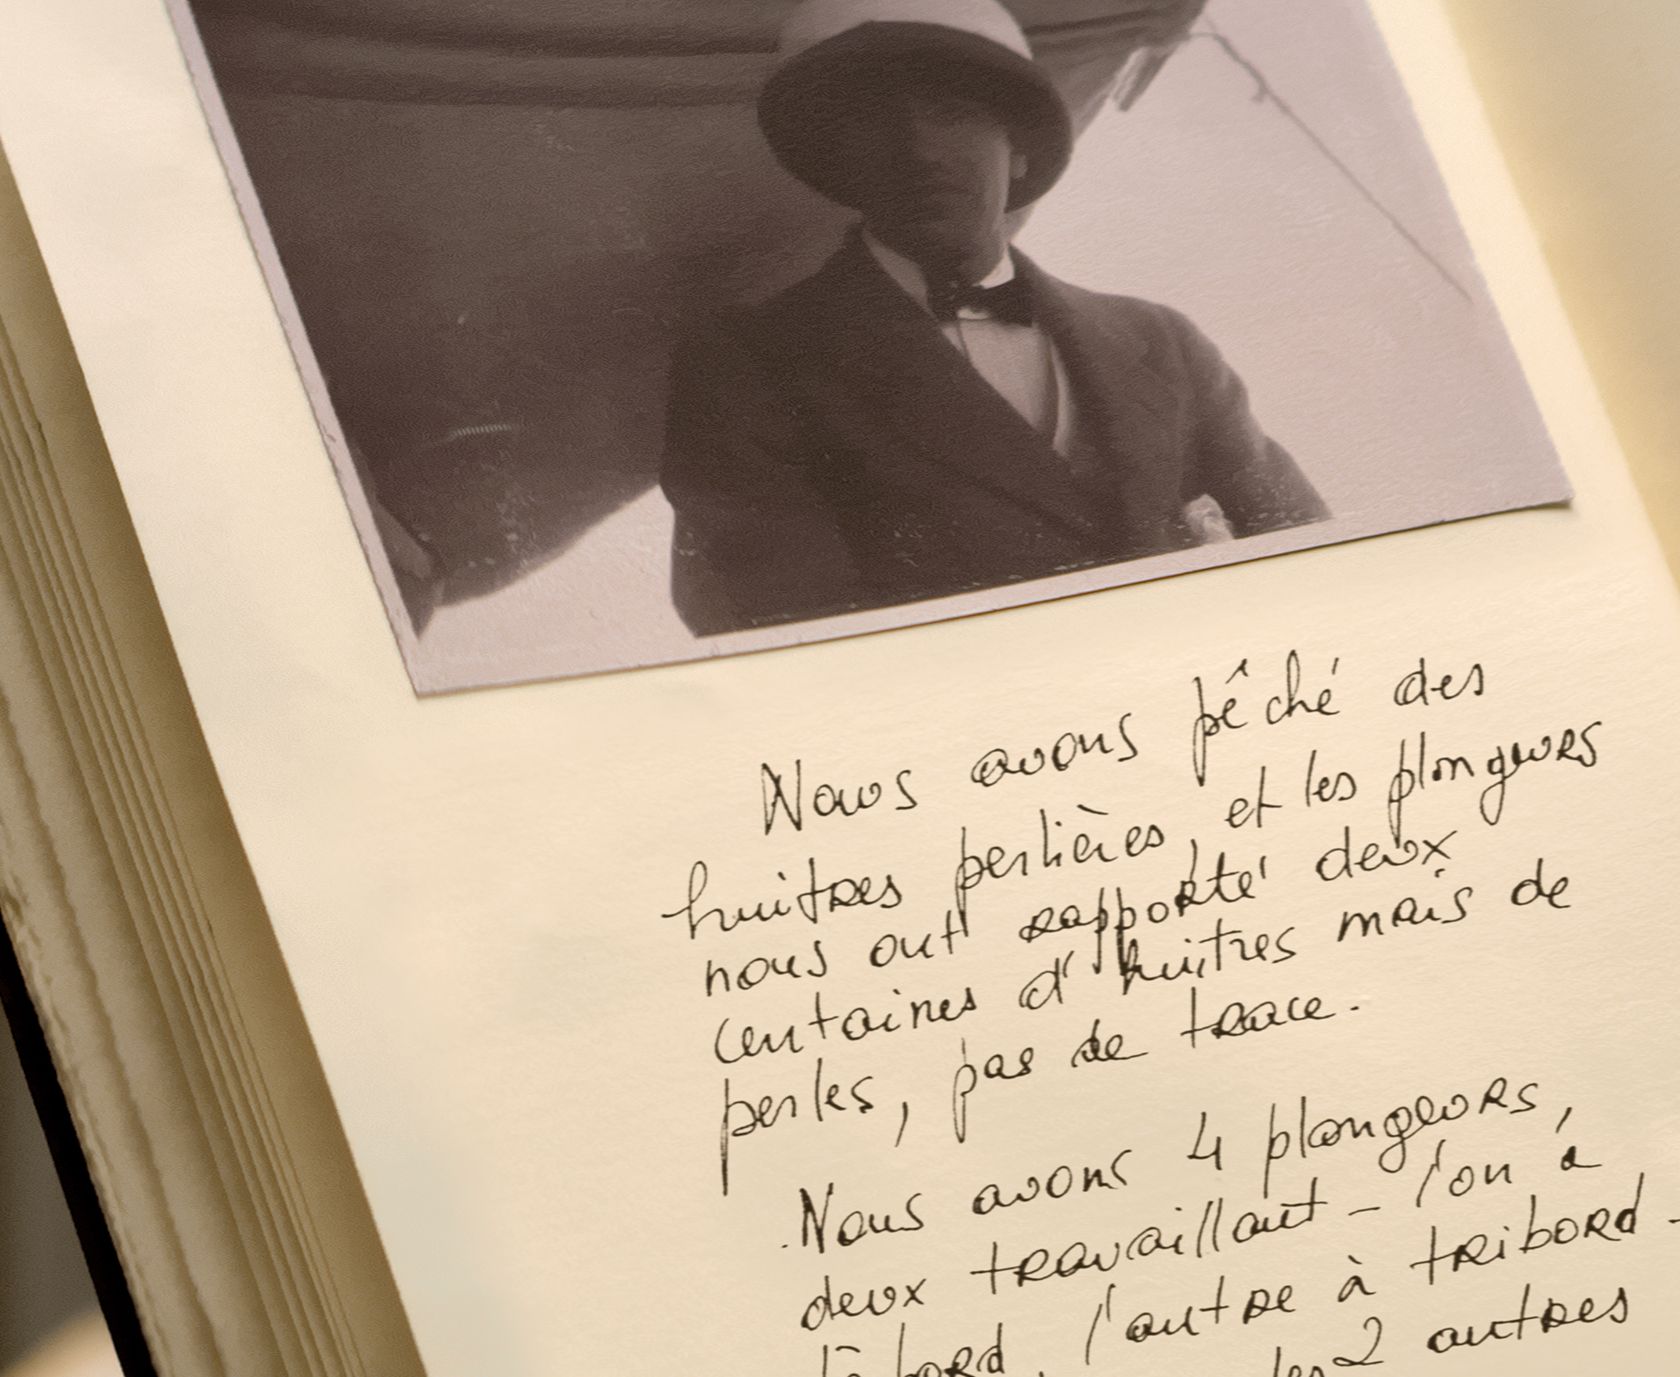 Nous avons pêché des
huitres perlières, et les plongeurs
nous ont rapporté deux
centaines d'huitres mais de
perles, pas de trace.
Nous avons 4 plongeurs,
deux travaillant - l'un à
bord, l'autre à tribord -
les 2 autres